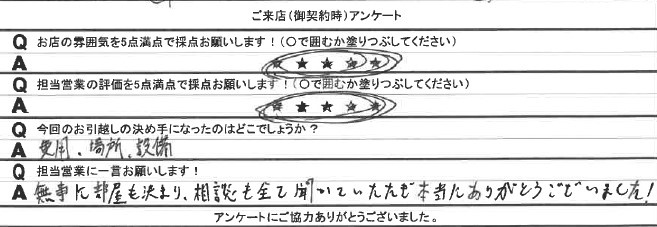 ご来店(御契約時)アンケート
Q お店の雰囲気を5点満点で採点お願いします!(〇で囲むか塗りつぶしてください)
A ★ ★ ★ ★ ★
Q 担当営業の評価を5点満点で採点お願いします!(〇で囲むか塗りつぶしてください)
A ★ ★ ★ ★ ★
Q 今回のお引越しの決め手になったのはどこでしょうか?
A 費用、場所、設備
Q 担当営業に一言お願いします!
A 無事に部屋も決まり、相談も全て聞いていただき本当にありがとうございました!
アンケートにご協力ありがとうございました。